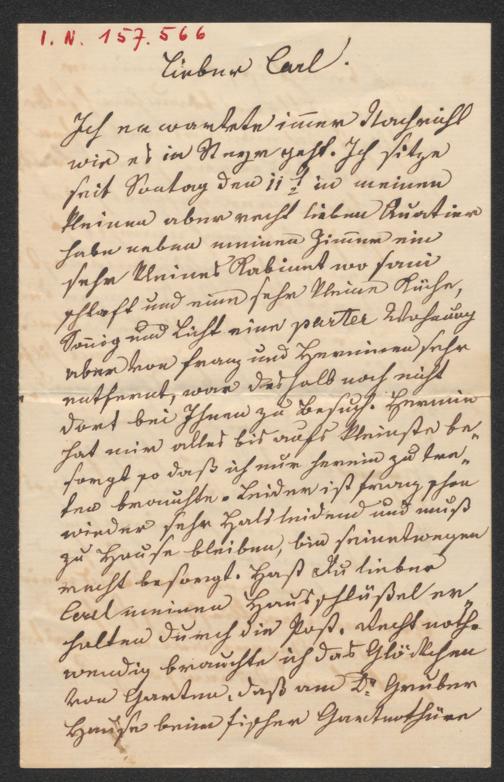 I. N. 157.566
Lieber Carl!
Ich erwartete immer Nachricht
wie es in Steyr geht. Ich sitze
seit Sontag den 11t in meinen
kleinen aber recht lieben Quatier
habe neben meinen Zimmer ein
sehr kleines Kabinet wo Fani
schlaft und eine sehr kleine Küche,
Sonig und Licht eine parter Wohnung
aber von Franz und Herminen sehr
entfernt, war deshalb noch nicht
dort bei Ihnen zu Besuch. Hermin
hat mir alles bis aufs kleinste be„
sorgt so daß ich nur herein zu tre„
ten brauchte. Leider ist Franz schon
wieder sehr Halsleidend und muß
zu Hause bleiben, bin seinetwegen
recht besorgt. Hast Du lieber
Carl meinen Hausschlüßel er„
halten durch die Post. Recht noth„
wendig brauchte ich das Glöckchen
von Garten, daß am Dr Gruber
Hause beim Fischer Gartnothüre